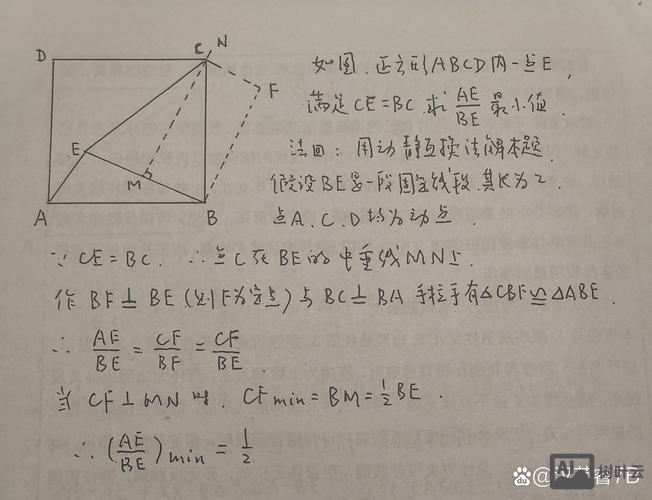 D
C
N
F
E
M
A
B
如图.正方形ABCD内一点E,
满足CE=BC.求 AE/BE 最小值.
法四:用动静互换法解本题.
假设BE是一段固定线段.其长为2.
点A.C.D均为动点.
∵ CE=BC. ∴点C在BE的中垂线MN上.
作BF⊥BE(则F为定点)与BC⊥BA 手拉手有△CBF≌△ABE.
∴ AE/BE = CF/BF = CF/BE.
当 CF⊥MN 时. CFmin = BM = 1/2 BE.
∴ (AE/BE)min = 1/2
树叶云